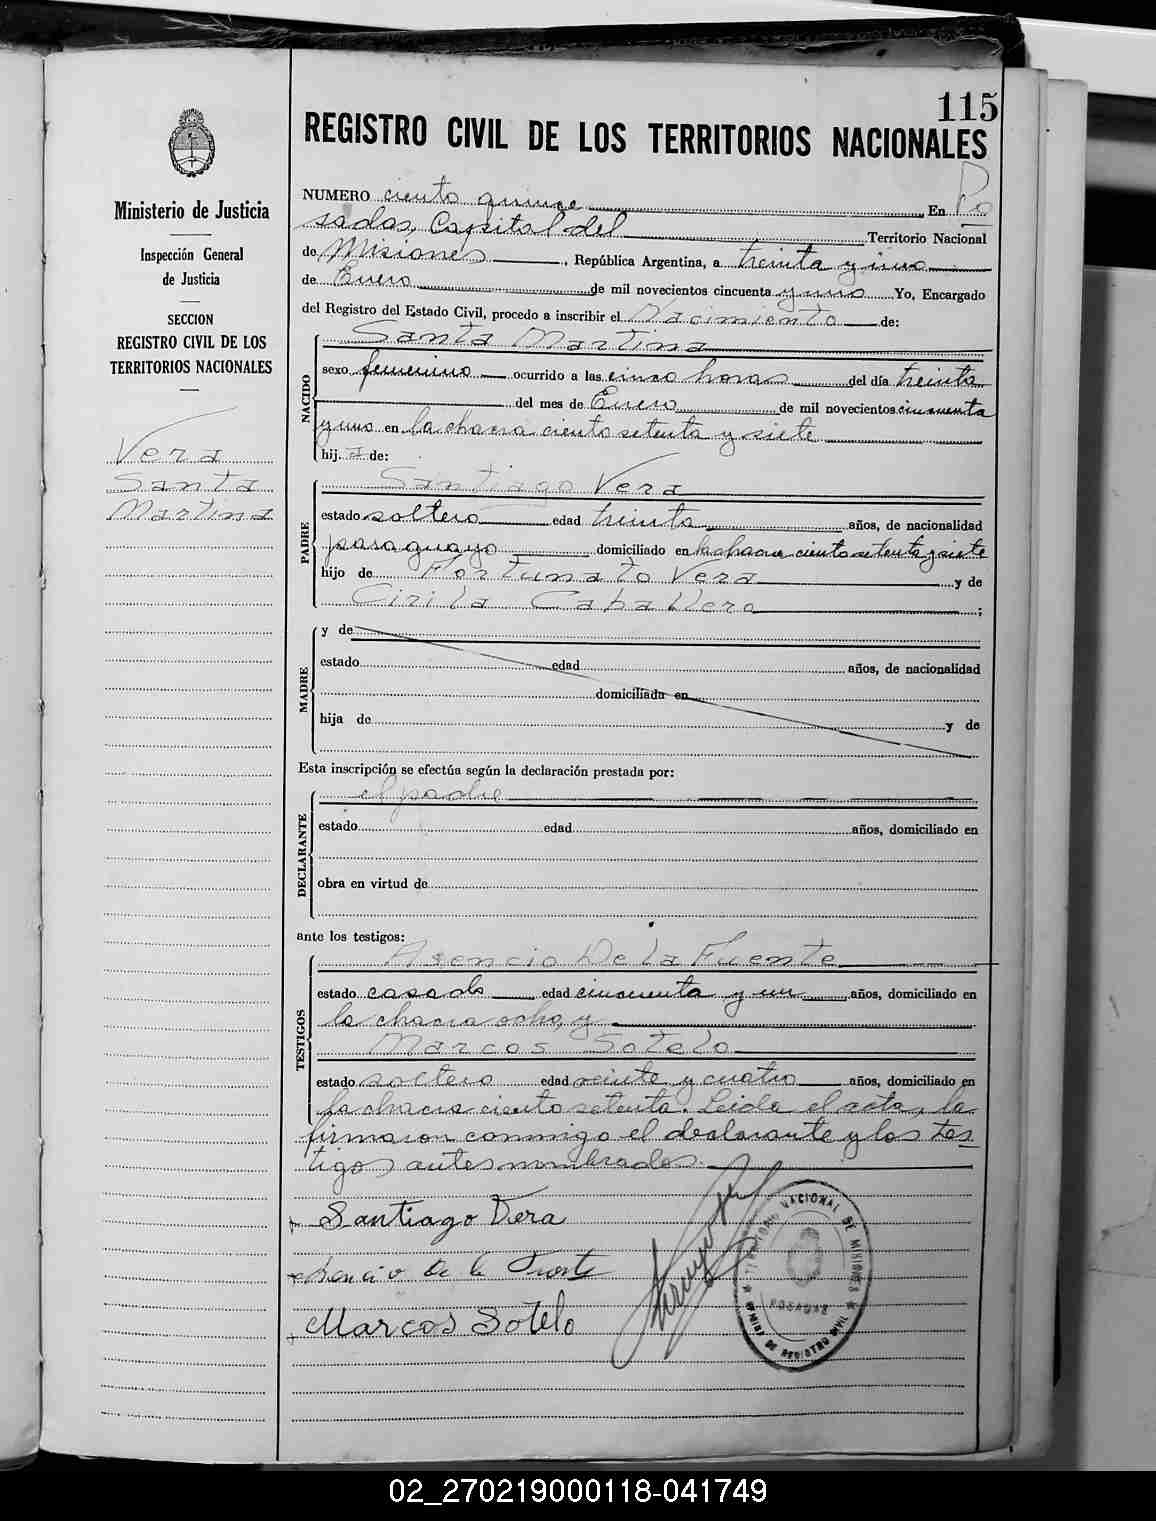 115
REGISTRO CIVIL DE LOS TERRITORIOS NACIONALES
Ministerio de Justicia
Inspección General
de Justicia
SECCION
REGISTRO CIVIL DE LOS
TERRITORIOS NACIONALES
Vera
Santa
Martina
NUMERO ciento quince En Po
sadas, Capital del Territorio Nacional
de Misiones, República Argentina, a treinta y uno
de Enero de mil novecientos cincuenta y uno Yo, Encargado
del Registro del Estado Civil, procedo a inscribir el Nacimiento de:
NACIDO
Santa Martina
sexo femenino ocurrido a las cinco horas del día treinta
del mes de Enero de mil novecientos cincuenta
y uno en la chacra ciento setenta y siete
hij a de:
PADRE
Santiago Vera
estado soltero edad treinta años, de nacionalidad
paraguayo domiciliado en la chacra ciento setenta y siete
hijo de Fortunato Vera y de
Cirila Caballero ;
MADRE
y de
estado edad años, de nacionalidad
domiciliada en
hija de y de
Esta inscripción se efectúa según la declaración prestada por:
DECLARANTE
el padre
estado edad años, domiciliado en
obra en virtud de
ante los testigos:
TESTIGOS
Asencio De la Fuente
estado casado edad cincuenta y un años, domiciliado en
la chacra ocho, y
Marcos Sotelo
estado soltero edad veinte y cuatro años, domiciliado en
la chacra ciento setenta. Leida el acta, la
firmaron conmigo el declarante y los tes-
tigos antes nombrados.
Santiago Vera
Asencio de la Fuente
Marcos Sotelo
TERRITORIO NACIONAL DE MISIONES
POSADAS
OFICINA DE REGISTRO CIVIL
02_270219000118-041749